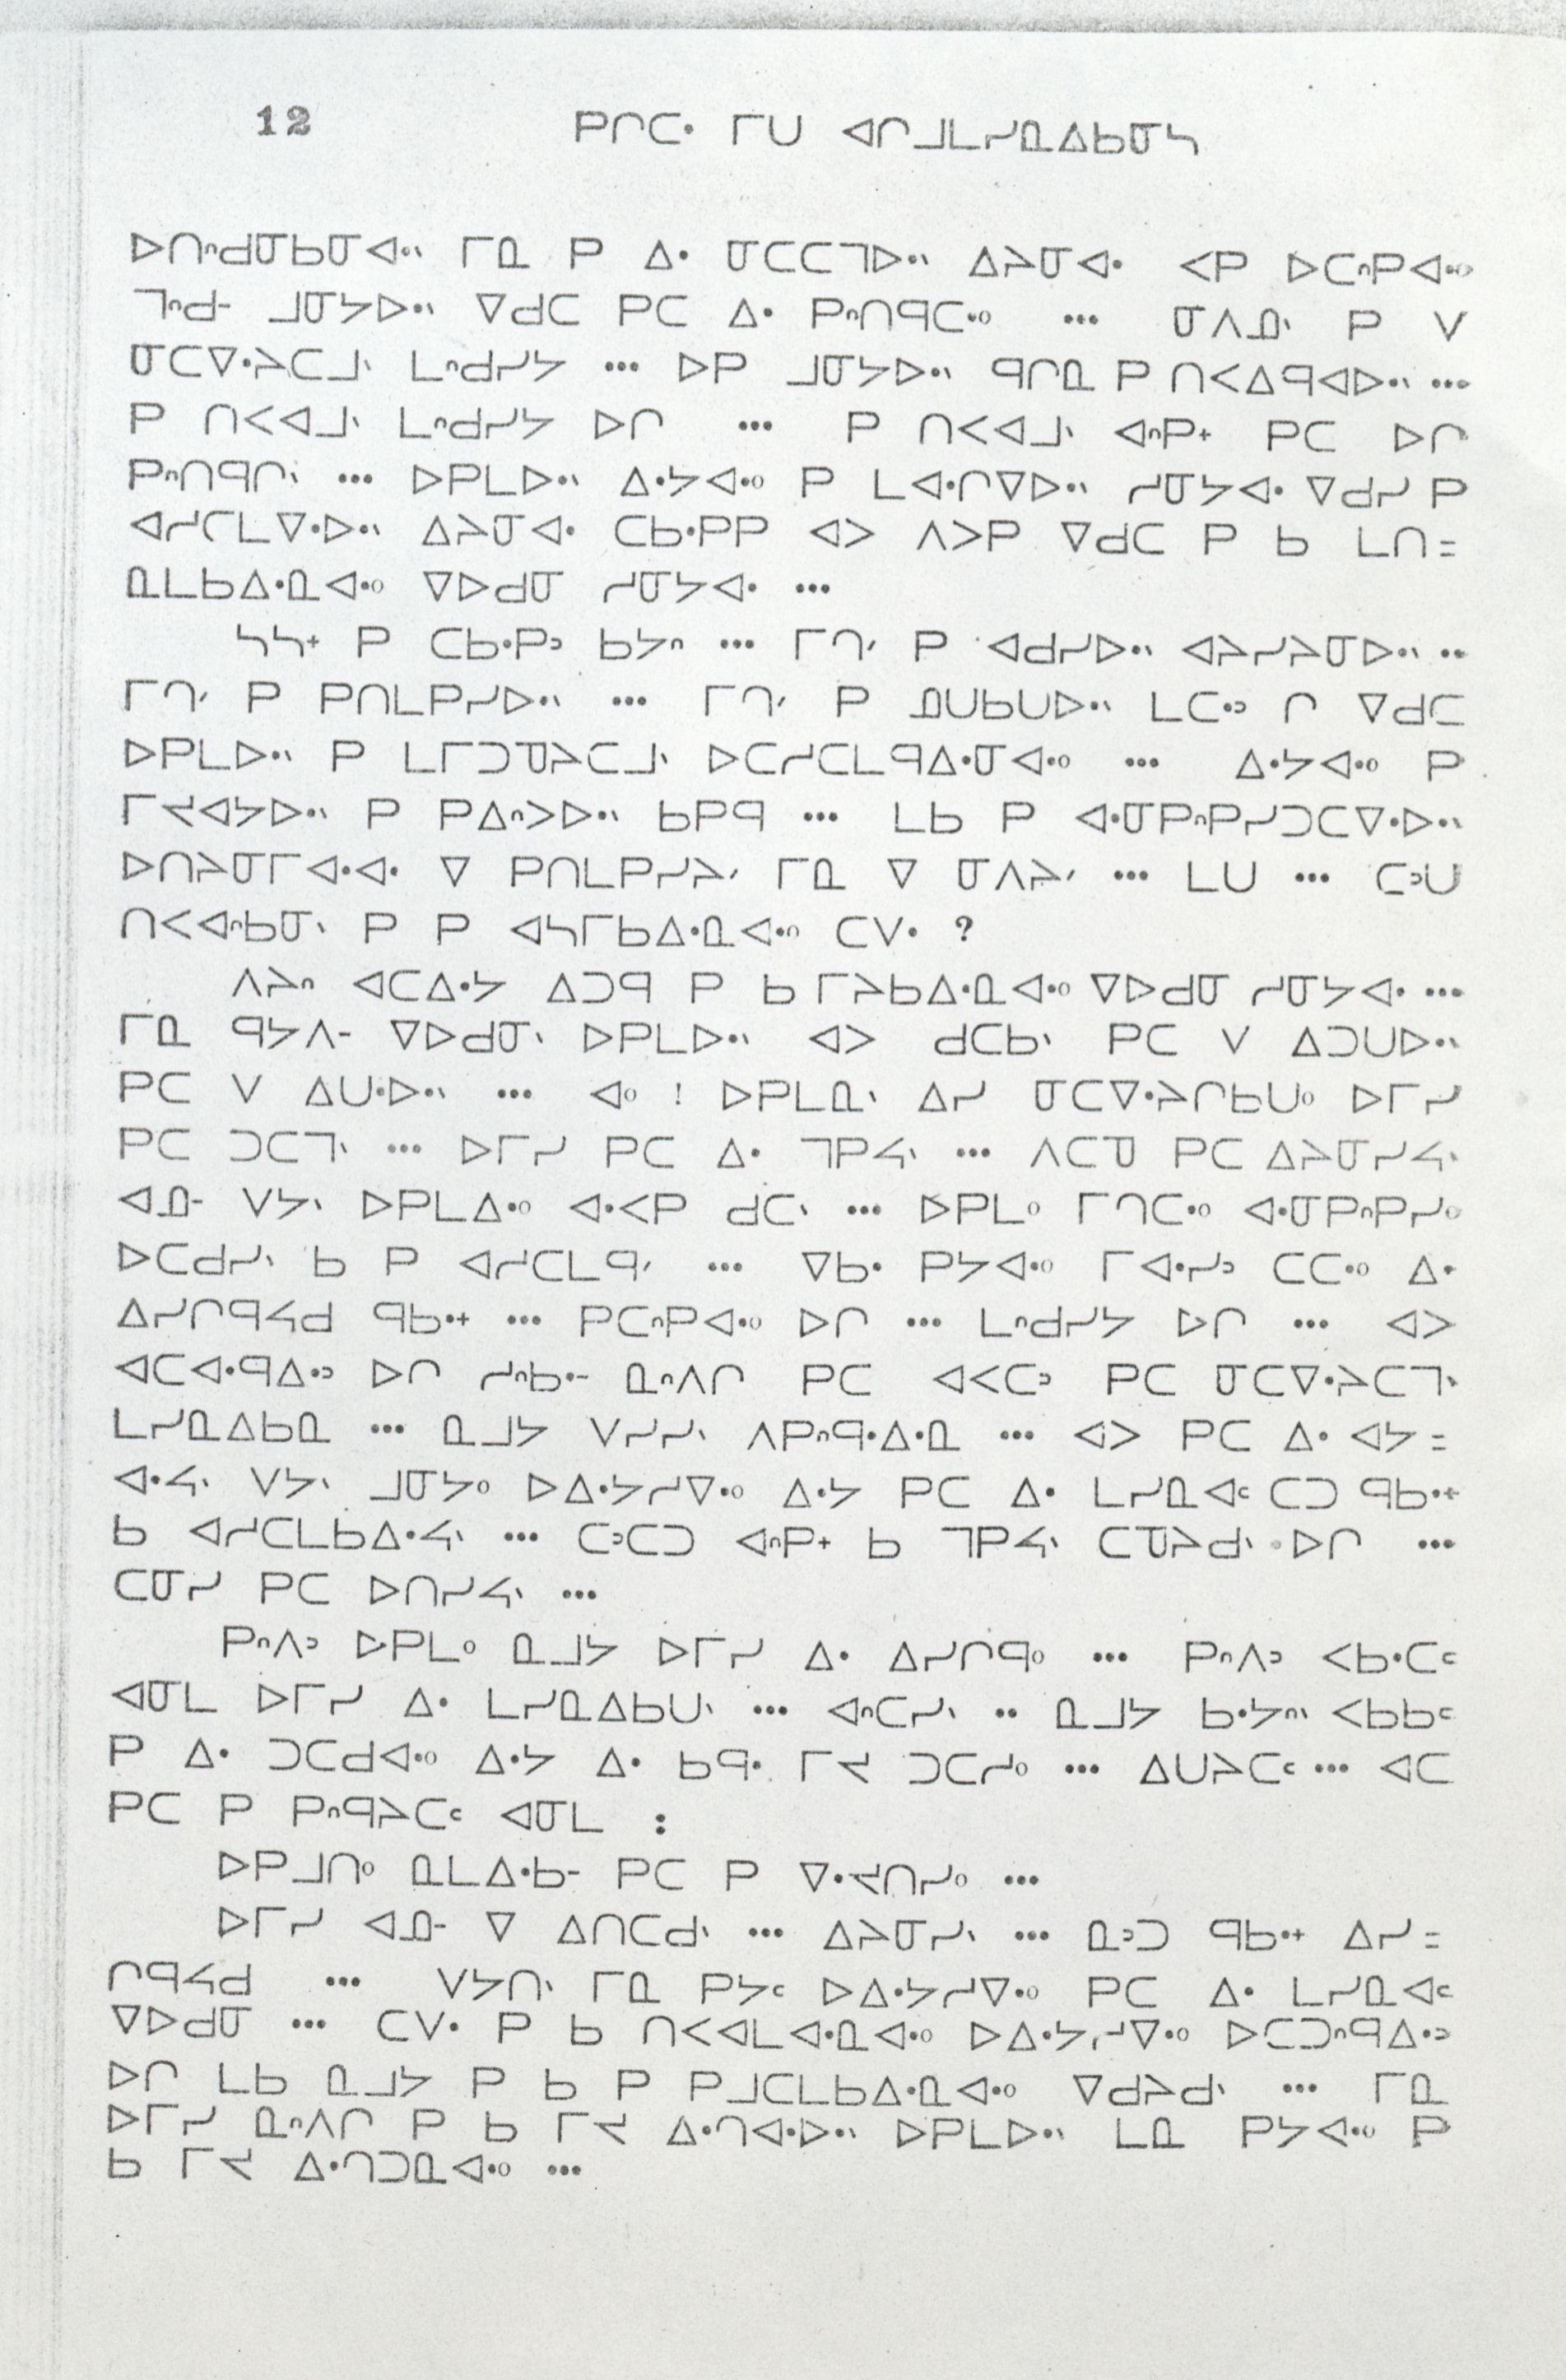 12 ᑭᒋᑕᐧ ᒥᑌ ᐊᒋᒧᒪᓯᓇᐃᑲᓂᓴ
ᐅᑎᐢᑯᓂᑲᓂᐊᐧᐠ ᒥᓇ ᑭ ᐃᐧ ᓂᑕᑕᒣᐅᐧᐠ ᐃᔨᓂᐊᐧ ᐸᑭ ᐅᑕᐢᑭᐊᐧᐤ
ᒣᐢᑯᐨ ᒧᓂᔭᐅᐧᐠ ᐁᑯᑕ ᑭᑕ ᐃᐧ ᑭᐢᑎᑫᑕᐧᐤ ... ᓂᐱᓄᐠ ᑭ ᐯ
ᓂᑕᐁᐧᔨᑕᒧᐠ ᒪᐢᑯᓯᔭ ... ᐅᑭ ᒧᓂᔭᐅᐧᐠ ᑫᒋᓇ ᑭ ᑎᐸᐃᑫᐊᐅᐧᐠ ...
ᑭ ᑎᐸᐊᒧᐠ ᒪᐢᑯᓯᔭ ᐅᒋ ... ᑭ ᑎᐸᐊᒧᐠ ᐊᐢᑭᕀ ᑭᑕ ᐅᒋ
ᑭᐢᑎᑫᒋᐠ ... ᐅᑭᒪᐅᐧᐠ ᐃᐧᔭᐊᐧᐤ ᑭ ᒪᐊᐧᒋᐁᐅᐧᐠ ᓯᓂᔭᐊᐧ ᐁᑯᓯ ᑭ
ᐊᓯᑕᒪᐁᐧᐅᐧᐠ ᐃᔨᓂᐊᐧ ᑕᑲᐧᑭᑭ ᐊᐳ ᐱᐳᑭ ᐁᑯᑕ ᑭ ᑲ ᒪᑎ=
ᓇᒪᑲᐃᐧᓇᐊᐧᐤ ᐁᐅᑯᓂ ᓯᓂᔭᐊᐧ ...
ᓴᓴᕀ ᑭ ᑕᑲᐧᑭᐣ ᑲᔭᐢ ... ᒥᒉᐟ ᑭ ᐊᑯᓯᐅᐧᐠ ᐊᔨᓯᔨᓂᐅᐧᐠ ..
ᒥᒉᐟ ᑭ ᑭᑎᒪᑭᓯᐅᐧᐠ ... ᒥᒉᐟ ᑭ ᓄᑌᑲᑌᐅᐧᐠ ᒪᑕᐧᐣ ᒋ ᐁᑯᑕ
ᐅᑭᒪᐅᐧᐠ ᑭ ᒪᒥᑐᓀᔨᑕᒧᐠ ᐅᑕᓯᑕᒪᑫᐃᐧᓂᐊᐧᐤ ... ᐃᐧᔭᐊᐧᐤ ᑭ
ᒥᔪᐊᔭᐅᐧᐠ ᑭ ᑭᐃᐢᐳᐅᐧᐠ ᑲᑭᑫ ... ᒪᑲ ᑭ ᐊᐧᓂᑭᐢᑭᓯᑐᑕᐁᐧᐅᐧᐠ
ᐅᑎᔨᓂᒥᐊᐧᐊᐧ ᐁ ᑭᑎᒪᑭᓯᔨᐟ ᒥᓇ ᐁ ᓂᐱᔨᐟ ... ᒪᑌ ... ᑕᐣᑌ
ᑎᐸᐊᐢᑲᓂᐠ ᑭ ᑭ ᐊᓴᒥᑲᐃᐧᓇᐊᐧᐤ ᑕᐯᐧ ?
ᐱᔨᐢ ᐊᑕᐃᐧᔭ ᐃᑐᑫ ᑭ ᑲ ᒥᔨᑲᐃᐧᓇᐊᐧᐤ ᐁᐅᑯᓂ ᓯᓂᔭᐊᐧ ...
ᒥᓇ ᑫᔭᐱᐨ ᐁᐅᑯᓂᐠ ᐅᑭᒪᐅᐧᐠ ᐊᐳ ᑯᑕᑲᐠ ᑭᑕ ᐯ ᐃᑐᑌᐅᐧᐠ
ᑭᑕ ᐯ ᐃᑌᐧᐅᐧᐠ ... ᐊᐤ ! ᐅᑭᒪᓇᐠ ᐃᓯ ᓂᑕᐁᐧᔨᒋᑲᑌᐤ ᐅᒥᓯ
ᑭᑕ ᑐᑕᒣᐠ ... ᐅᒥᓯ ᑭᑕ ᐃᐧ ᒣᑭᔦᐠ ... ᐱᑕᓀ ᑭᑕ ᐃᔨᓂᓯᔦᐠ
ᐊᓄᐨ ᐯᔭᐠ ᐅᑭᒪᐃᐧᐤ ᐊᐧᐸᑭ ᑯᑕᐠ ... ᐅᑭᒪᐤ ᒥᒉᑕᐧᐤ ᐊᐧᓂᑭᐢᑭᓯᐤ
ᐅᑕᑯᓯᐠ ᑲ ᑭ ᐊᓯᑕᒪᑫᐟ ... ᐁᑲᐧ ᑭᔭᐊᐧᐤ ᒥᐊᐧᓯᐣ ᑕᑕᐧᐤ ᐃᐧ
ᐃᓯᒋᑫᔦᑯ ᑫᑲᐧᕀ ... ᑭᑕᐢᑭᐊᐧᐤ ᐅᒋ ... ᒪᐢᑯᓯᔭ ᐅᒋ ... ᐊᐳ
ᐊᑕᐊᐧᑫᐃᐧᐣ ᐅᒋ ᓯᐢᑲᐧᐨ ᓇᐢᐱᒋ ᑭᑕ ᐊᐸᑕᐣ ᑭᑕ ᓂᑕᐁᐧᔨᑕᒣᐠ
ᒪᓯᓇᐃᑲᓇ ... ᓇᒧᔭ ᐯᓯᓯᐠ ᐱᑭᐢᑫᐧᐃᐧᓇ ... ᐊᐳ ᑭᑕ ᐃᐧ ᐊᔭ=
ᐊᐧᔦᐠ ᐯᔭᐠ ᒧᓂᔭᐤ ᐅᐃᐧᔭᓯᐁᐧᐤ ᐃᐧᔭ ᑭᑕ ᐃᐧ ᒪᓯᓇᐊᑦ ᑕᑐ ᑫᑲᐧᕀ
ᑲ ᐊᓯᑕᒪᑲᐃᐧᔦᐠ ... ᑕᐣᑕᑐ ᐊᐢᑭᕀ ᑲ ᒣᑭᔦᐠ ᑕᓀᔨᑯᐠ ᐅᒋ ...
ᑕᓂᓯ ᑭᑕ ᐅᑎᓯᔦᐠ ...
ᑭᐢᐱᐣ ᐅᑭᒪᐤ ᓇᒧᔭ ᐅᒥᓯ ᐃᐧ ᐃᓯᒋᑫᐤ ... ᑭᐢᐱᐣ ᐸᑲᐧᑕᑦ
ᐊᓂᒪ ᐅᒥᓯ ᐃᐧ ᒪᓯᓇᐃᑲᑌᐠ ... ᐊᐢᑕᓯᐠ .. ᓇᒧᔭ ᑲᐧᔭᐢᐠ ᐸᑲᑲᑦ
ᑭ ᐃᐧ ᑐᑕᑯᐊᐧᐤ ᐃᐧᔭ ᐃᐧ ᑲᑫᐧ ᒥᔪ ᑐᑕᓱᐤ ... ᐃᑌᔨᑕᑦ ... ᐊᑕ
ᑭᑕ ᑭ ᑭᐢᑫᔨᑕᑦ ᐊᓂᒪ :
ᐅᑭᒧᑎᐤ ᓇᒪᐃᐧᑲᐨ ᑭᑕ ᑭ ᐁᐧᔪᑎᓯᐤ ...
ᐅᒥᓯ ᐊᓄᐨ ᐁ ᐃᑎᑕᑯᐠ ... ᐃᔨᓂᓯᐠ ... ᓇᐣᑐ ᑫᑲᐧᕀ ᐃᓯ=
ᒋᑫᔦᑯ ... ᐯᔭᑎᐠ ᒥᓇ ᑭᔭᑦ ᐅᐃᐧᔭᓯᐁᐧᐤ ᑭᑕ ᐃᐧ ᒪᓯᓇᐊᑦ
ᐁᐅᑯᓂ ... ᑕᐯᐧ ᑭ ᑲ ᑎᐸᐊᒪᐊᐧᓇᐊᐧᐤ ᐅᐃᐧᔭᓯᐁᐧᐤ ᐅᑕᑐᐢᑫᐃᐧᐣ
ᐅᒋ ᒪᑲ ᓇᒧᔭ ᑭ ᑲ ᑭ ᑭᒧᑕᒪᑲᐃᐧᓇᐊᐧᐤ ᐁᑯᔨᑯᐠ ... ᒥᓇ
ᐅᒥᓯ ᓇᐢᐱᒋ ᑭ ᑲ ᒥᔪ ᐃᐧᒉᐊᐧᐅᐧᐠ ᐅᑭᒪᐅᐧᐠ ᒪᓇ ᑭᔭᐊᐧᐤ ᑭ
ᑲ ᒥᔪ ᐃᐧᒉᑐᓇᐊᐧᐤ ...